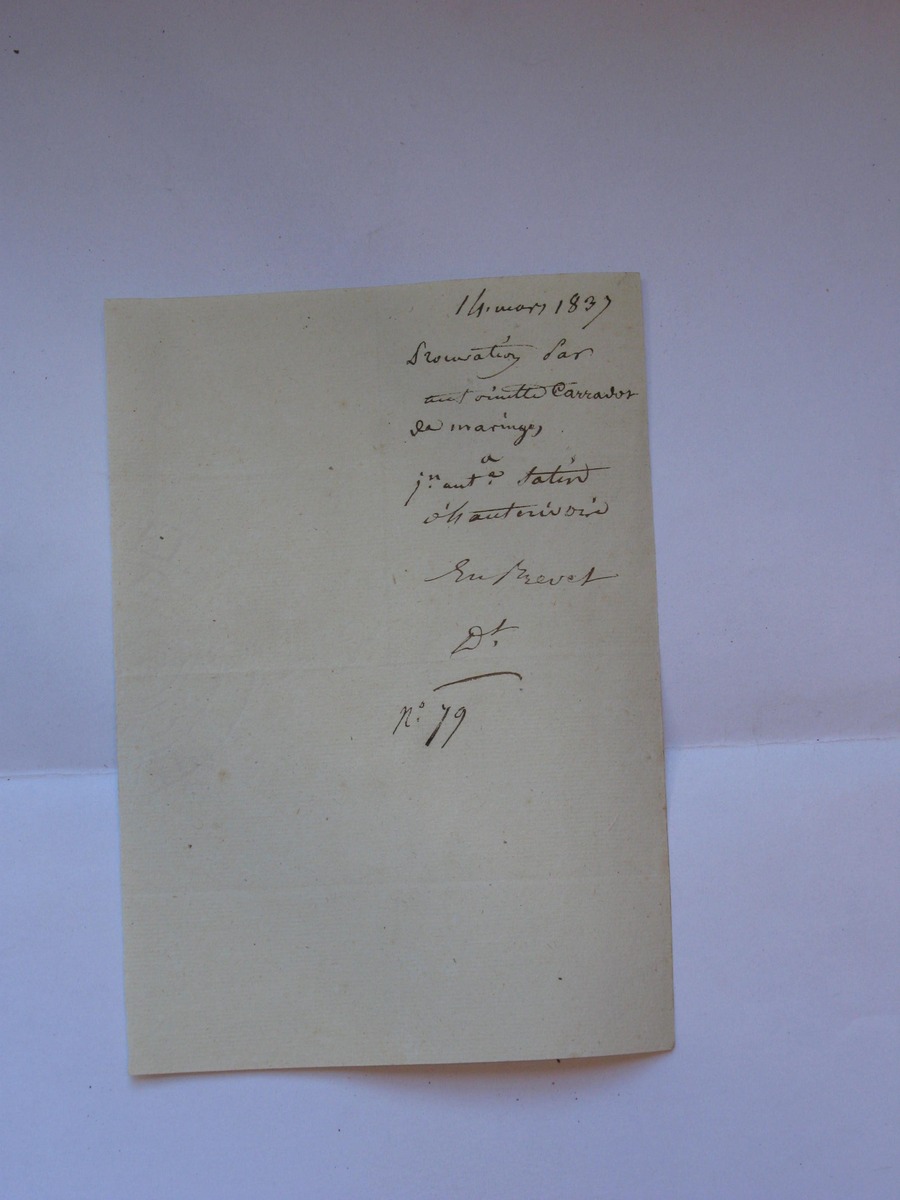 14. mars 1837
Procuration Par
antoinette Carrador
de maringes
a
jn. ante. 
d'hauterivoire
En Brevet
Dt.
No. 79